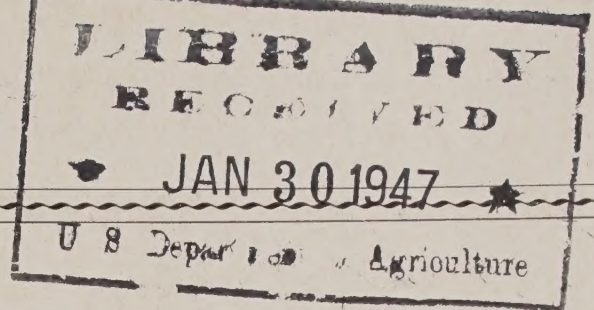 LIBRARY
RECEIVED
★ JAN 30 1947 ★
U S Department of Agriculture